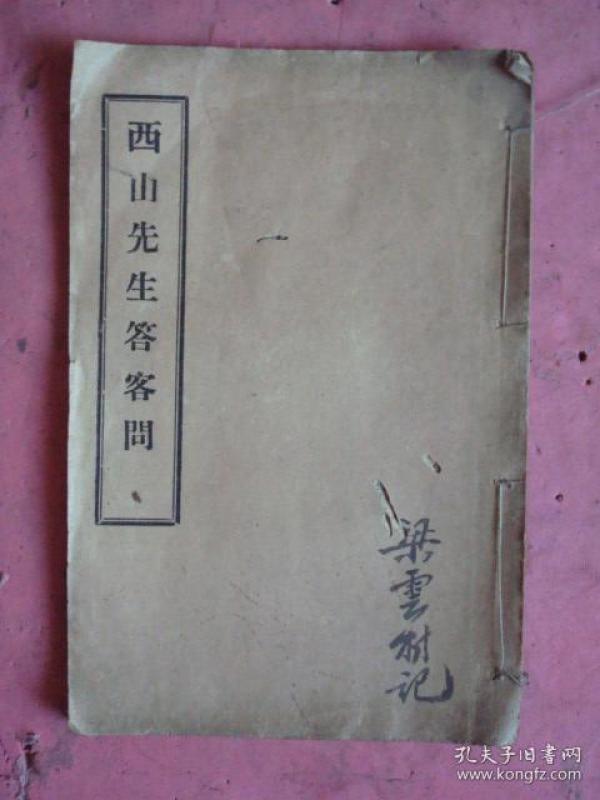 西山先生答客問
梁雲樹記
孔夫子旧書网
www.kongfz.com